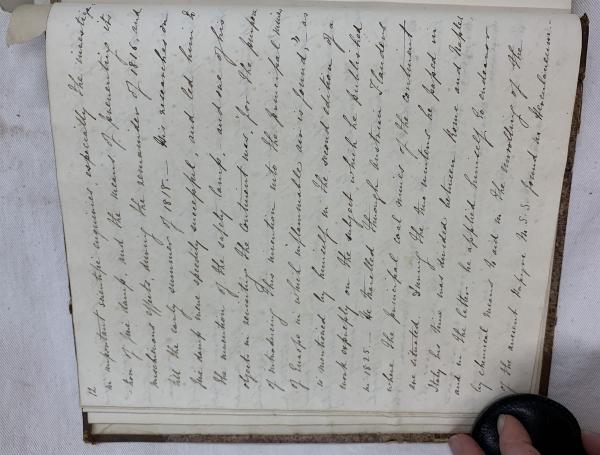 12
in important scientific enquiries, especially the investiga-
tion of fire damp, and the means of preventing its
mischievous effects, during the remainder of 1816, and
till the early summer of 1818. — His researches on
fire damp were speedily successful, and led him to
the invention of the safety lamp, and one of his
objects in revisiting the continent was, for the purpose
of introducing this invention into the principal mines
of Europe in which inflammable air is found; as
is mentioned by himself in the second edition of a
work expressly on the subject which he published
in 1825. — He travelled through Austria & Flanders
where the principal coal mines of the continent
are situated. During the two winters he passed in
Italy his time was divided between Rome and Naples
and in the latter he applied himself to endeavor
by chemical means to aid in the unrolling of the
of the ancient Papyri M.S.S. found in Herculaneum. —